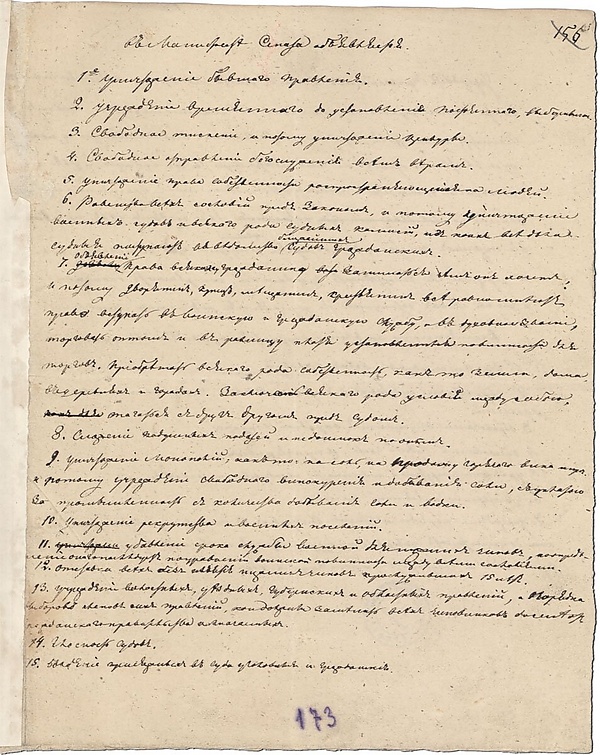 156
Въ Манифестѣ Сената объявляется.
1е уничтоженіе бывшаго правленія.
2. учрежденіе временнаго до установленія постояннаго, выборными.
3. Свободное тисненіе, и потому уничтоженіе цензуры.
4. Свободное отправленіе богослуженія всѣмъ вѣрамъ.
5. уничтоженіе права собственности распространяющейся на людей.
6. Равенство всѣхъ сословій предъ Закономъ, и потому уничтоженіе
военныхъ судовъ и всякаго рода судныхъ коммисій, изъ коихъ всѣ дѣла
судныя поступаютъ въ вѣдомство судовъ гражданскихъ.
7. объявленіе права всякому гражданину заниматься чѣмъ онъ хочетъ,
и потому дворянинъ, купецъ, мещанинъ, крестьянинъ всѣ равно имѣютъ
право вступать въ воинскую и гражданскую службу, и въ духовное званіе,
торговать оптомъ и въ розницу платя установленныя повинности для
торговъ. Пріобрѣтать всякаго рода собственность, какъ то земли, дома
въ деревняхъ и городахъ. Заключать всякаго рода условія между собою,
тягаться съ другъ другомъ предъ судомъ.
8. Сложеніе подушныхъ податей и недоимокъ по онымъ.
9. Уничтоженіе Монополій, какъ то: на соль, на продажу горячаго вина
и потому учрежденіе свободнаго винокуренія и добыванія соли, съ уплатою
за промышленность съ количества добыванія соли и водки.
10. Уничтоженіе рекрутства и военныхъ поселеній.
11. убавленіе срока службы военной для нижнихъ чиновъ,
воинской повинности между всѣми сословіями.
12. Отставка всѣхъ нижнихъ чиновъ прослужившихъ 15 лѣтъ.
13. учрежденіе волостныхъ, уѣздныхъ, губернскихъ и областныхъ правленій, и порядка
выборовъ членовъ сихъ правленій, кои должны замѣнить всѣхъ чиновниковъ доселѣ отъ
гражданскаго правительства назначаемыхъ.
14. Гласность судовъ.
15. введеніе присяжныхъ въ суды уголовные и гражданскіе.
173